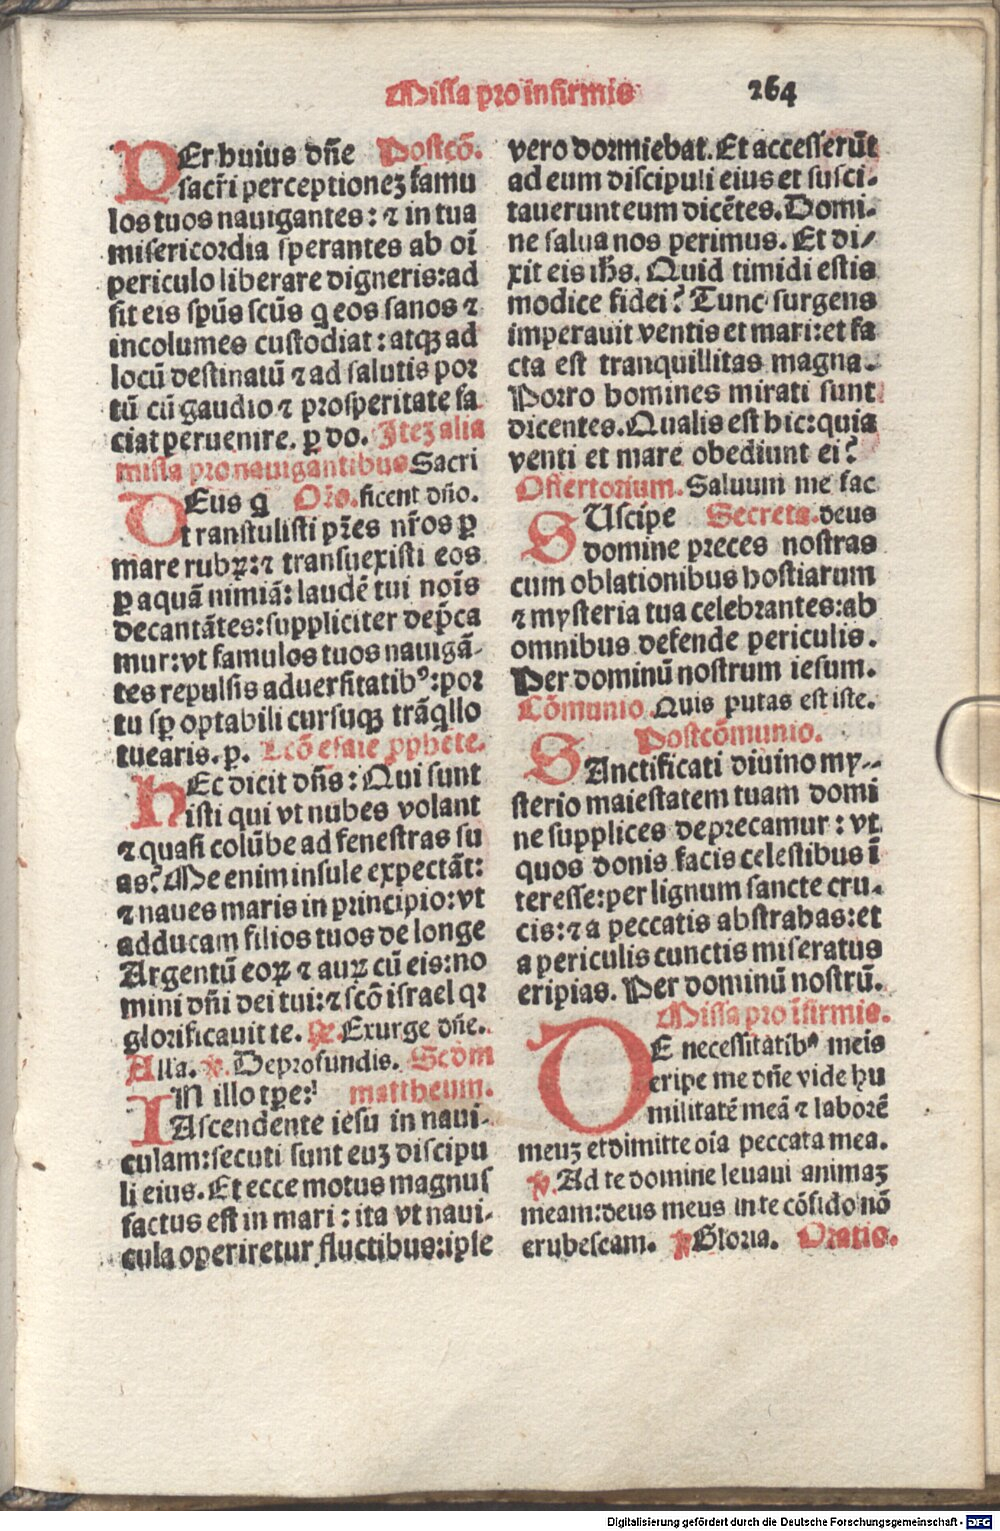 Missa pro infirmis 264
PEr huius dñe Postcõ.
sacr̃i perceptionez famu
los tuos nauigantes: ⁊ in tua
misericordia sperantes ab oı̃
periculo liberare digneris: ad
sit eis sp̃us scũs q eos sanos ⁊
incolumes custodiat: atqꝫ ad
locũ destinatũ ⁊ ad salutis por
tũ cũ gaudio ⁊ prosperitate fa
ciat peruenire. ꝑ do. Itez alia
missa pro nauigantibus Sacri
DEus q Orõ. ficent dño.
transtulisti pr̃es nr̃os ꝑ
mare rubꝝ: ⁊ transuexisti eos
ꝑ aquã nimiã: laudẽ tui noı̃s
decantãtes: suppliciter dep̃ca
mur: vt famulos tuos nauigã-
tes repulsis aduersitatibꝰ: por
tu sꝑ optabili cursuqꝫ trãqllo
tuearis. ꝑ. Lcõ esaie ꝓphete.
hEc dicit dñs: Qui sunt
isti qui vt nubes volant
⁊ quasi colũbe ad fenestras su
as? Me enim insule expectãt:
⁊ naues maris in principio: vt
adducam filios tuos de longe
Argentũ eoꝝ ⁊ auꝝ cũ eis: no
mini dñi dei tui: ⁊ scõ israel qꝛ
glorificauit te. ℟. Exurge dñe.
Alla. ℣. De profundis. Scdm
IN illo tꝑe: mattheum.
Ascendente iesu in naui-
culam: secuti sunt euz discipu
li eius. Et ecce motus magnus
factus est in mari: ita vt naui-
cula operiretur fluctibus: ipse
vero dormiebat. Et accesserũt
ad eum discipuli eius et susci-
tauerunt eum dicẽtes. Domi-
ne salua nos perimus. Et di/
xit eis ihs. Quid timidi estis
modice fidei? Tunc surgens
imperauit ventis et mari: et fa
cta est tranquillitas magna.
Porro homines mirati sunt
dicentes. Qualis est hic: quia
venti et mare obediunt ei?
Offertorium. Saluum me fac
SUscipe Secreta. deus
domine preces nostras
cum oblationibus hostiarum
⁊ mysteria tua celebrantes: ab
omnibus defende periculis.
Per dominũ nostrum iesum.
Cõmunio. Quis putas est iste.
Postcõmunio.
SAnctificati diuino my-
sterio maiestatem tuam domi
ne supplices deprecamur: vt
quos donis facis celestibus ı̃
teresse: per lignum sancte cru-
cis: ⁊ a peccatis abstrahas: et
a periculis cunctis miseratus
eripias. Per dominũ nostrũ.
Missa pro ı̃firmis.
DE necessitatibꝰ meis
eripe me dñe vide hu
militatẽ meã ⁊ laborẽ
meuz et dimitte oı̃a peccata mea.
℣. Ad te domine leuaui animaz
meam: deus meus in te cõfido nõ
erubescam. ℣ Gloria. Oratio.
Digitalisierung gefördert durch die Deutsche Forschungsgemeinschaft - DFG